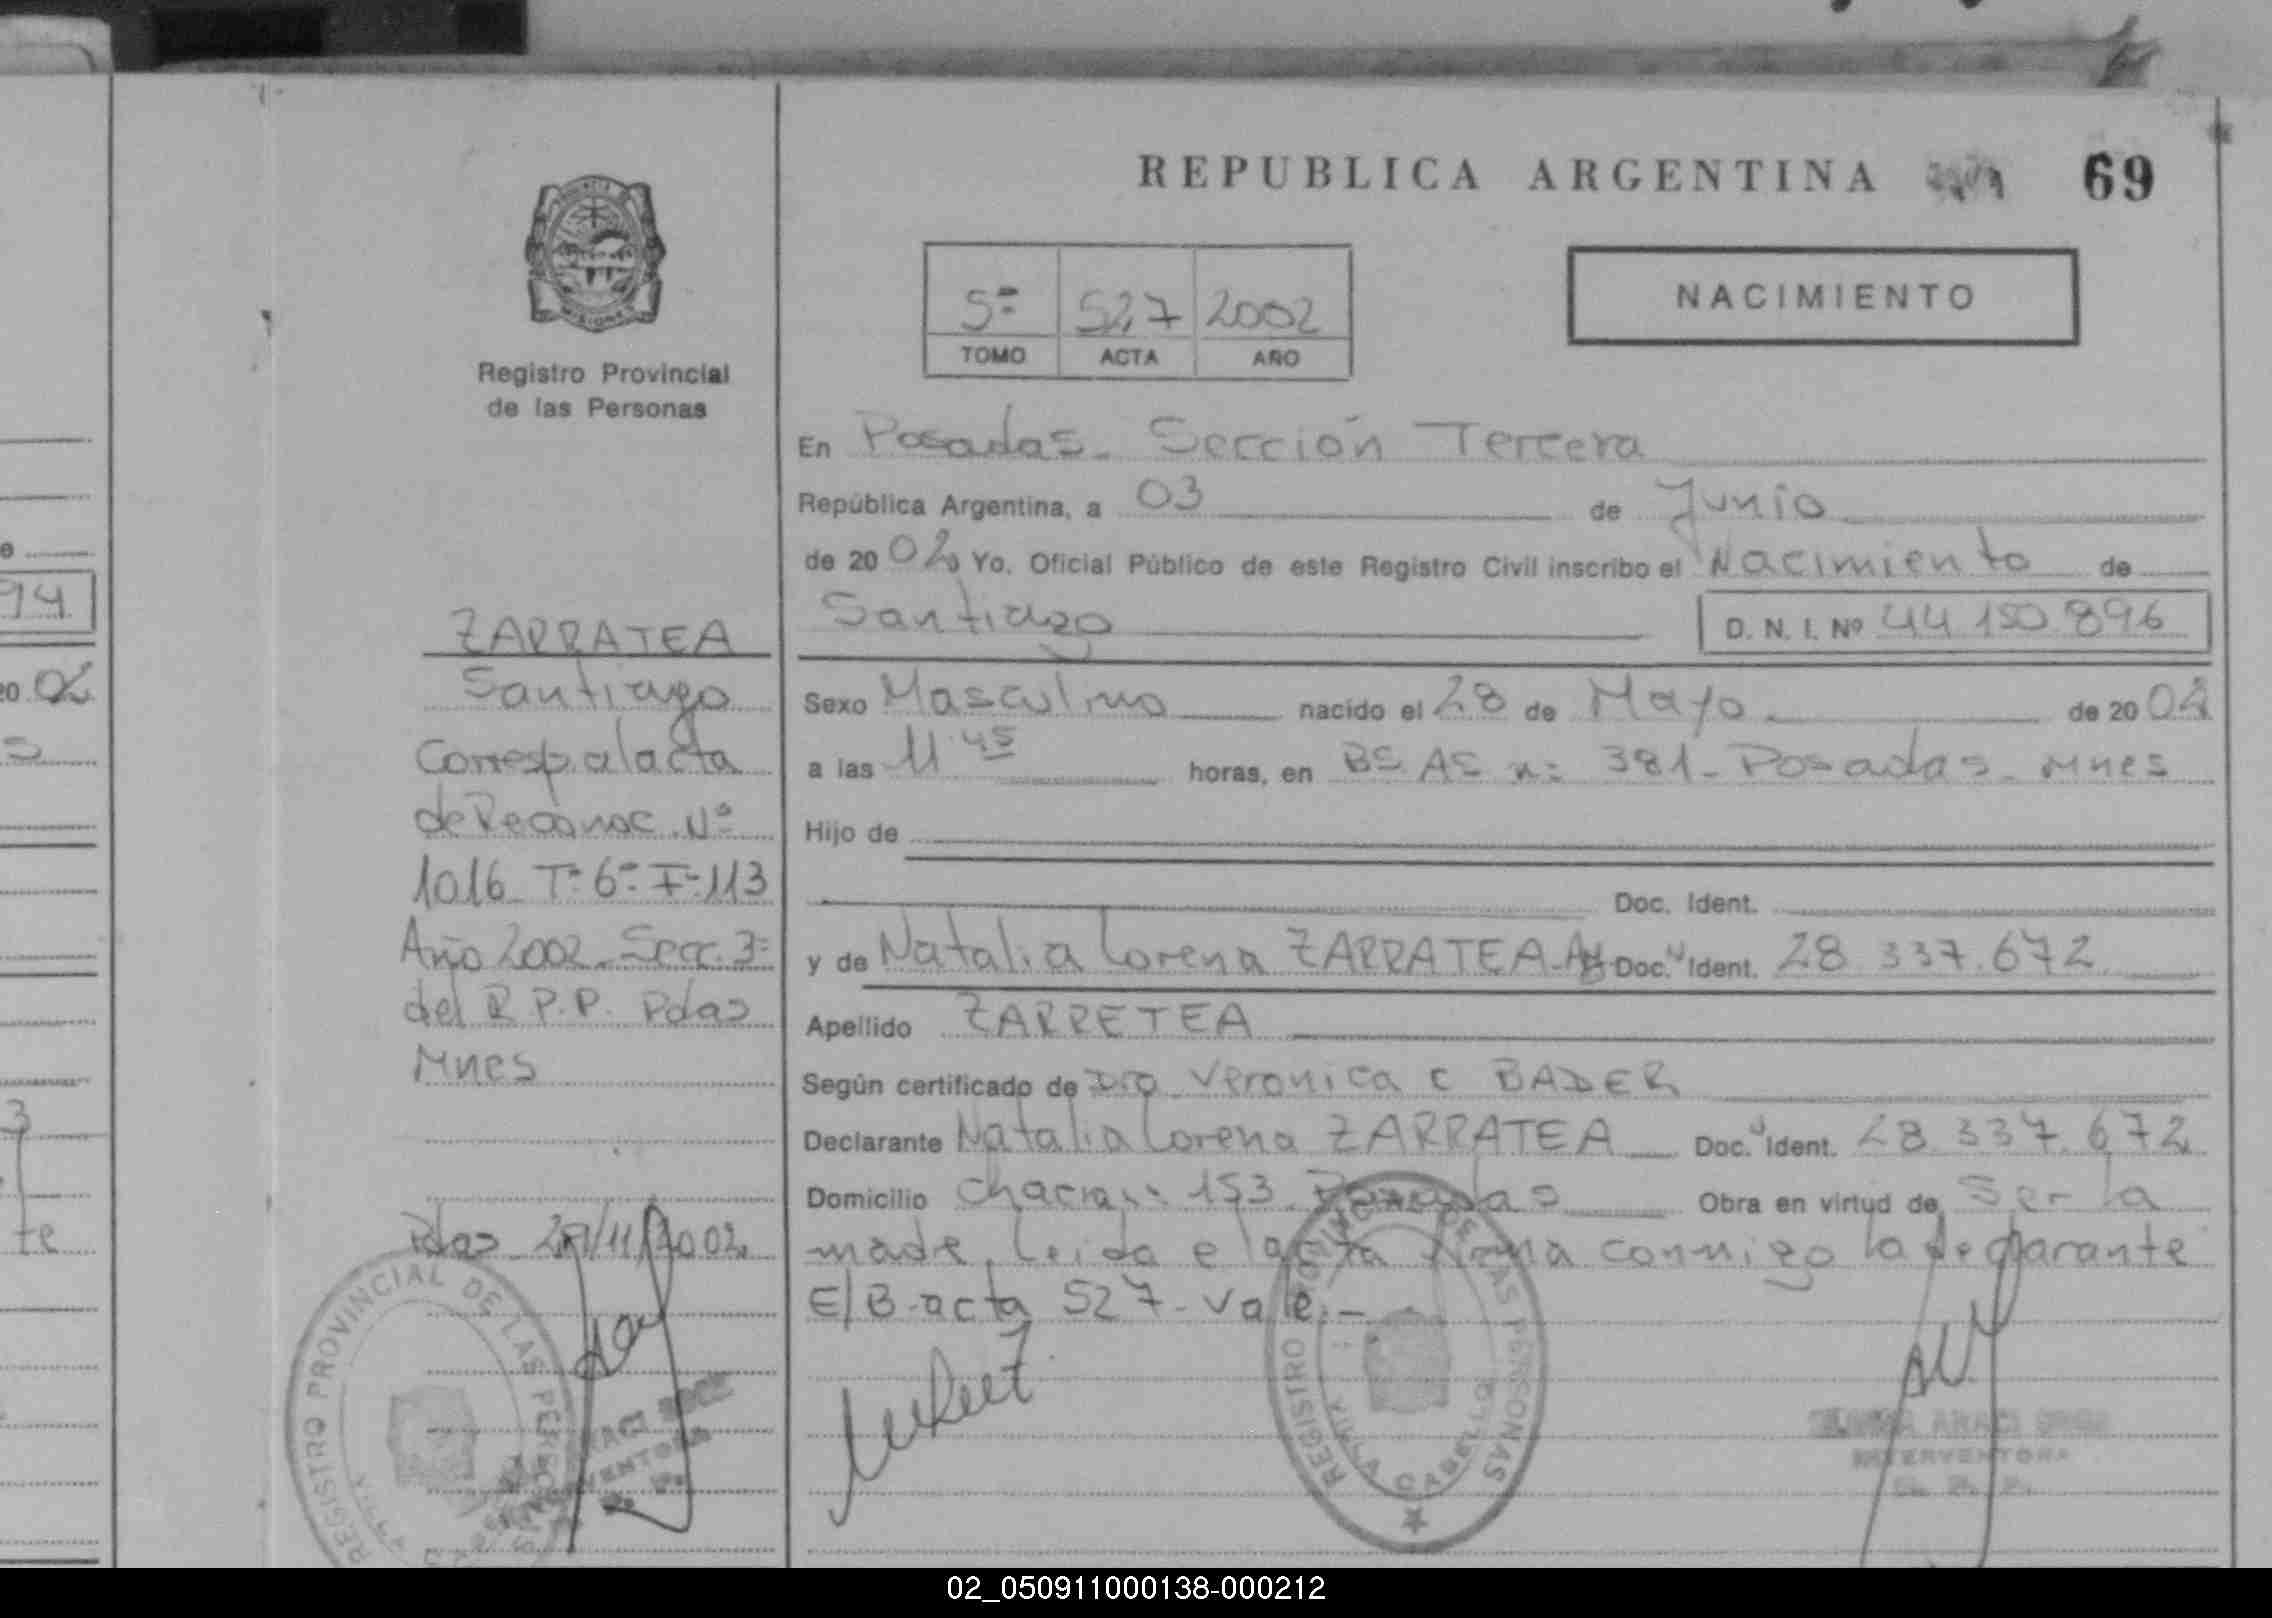 REPUBLICA ARGENTINA 69
5ª 527 2002
TOMO ACTA AÑO
NACIMIENTO
Registro Provincial
de las Personas
En Posadas - Sección Tercera
República Argentina, a 03 de Junio
de 20 02 Yo. Oficial Público de este Registro Civil inscribo el Nacimiento de
Santiago D. N. I. Nº 44 150 896
Sexo Masculino nacido el 28 de Mayo de 20 02
a las 11 45 horas, en BS AS nº 381 - Posadas - Mnes
Hijo de
Doc. Ident.
y de Natalia Lorena ZARRATEA - Doc. Ident. 28 337.672
Apellido ZARRETEA
Según certificado de Dra Veronica C BADER
Declarante Natalia Lorena ZARRATEA Doc. Ident. 28 337.672
Domicilio chacra 153 Posadas Obra en virtud de Ser la
madre Leida el acta firma conmigo la declarante
E/B acta 527 - Vale. -
ZARRATEA
Santiago
Corresp. al acta
de Reconoc. Nº
1016 Tº 6º Fº 113
Año 2002 - Secc. 3ª
del R.P.P. Pdas
Mnes
Pdas /11/2002
REGISTRO PROVINCIAL DE LAS PERSONAS
REGISTRO PROVINCIAL DE LAS PERSONAS
VILLA CABELLO
INTERVENTORA
94
20 02
s
3
te
02_050911000138-000212